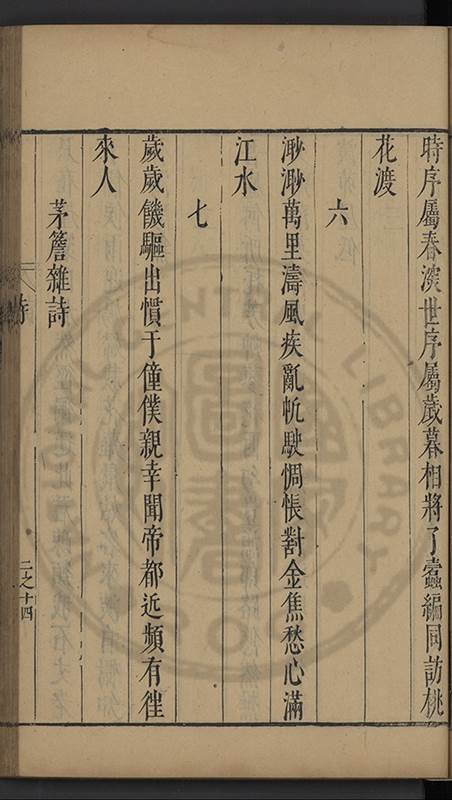 時序屬春深世序屬歲暮相將了蠹編同訪桃
花渡
六
渺渺萬里濤風疾亂帆駛惆悵對金焦愁心滿
江水
七
歲歲饑驅出慣于僮僕親幸聞帝都近頻有徃
來人
茅簷雜詩
詩
二之十四